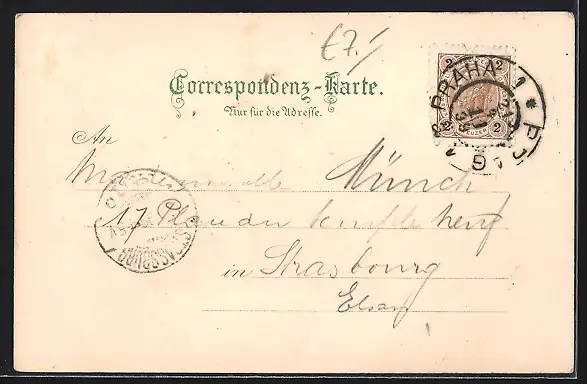 £7.-/
Correspondenz-Karte.
Nur für die Adresse.
2 2
2 2
KREUZER
PRAHA 1 * P
An
Mademoiselle Münch
17 Place du
in Strasbourg
Elsass
STRASSBURG